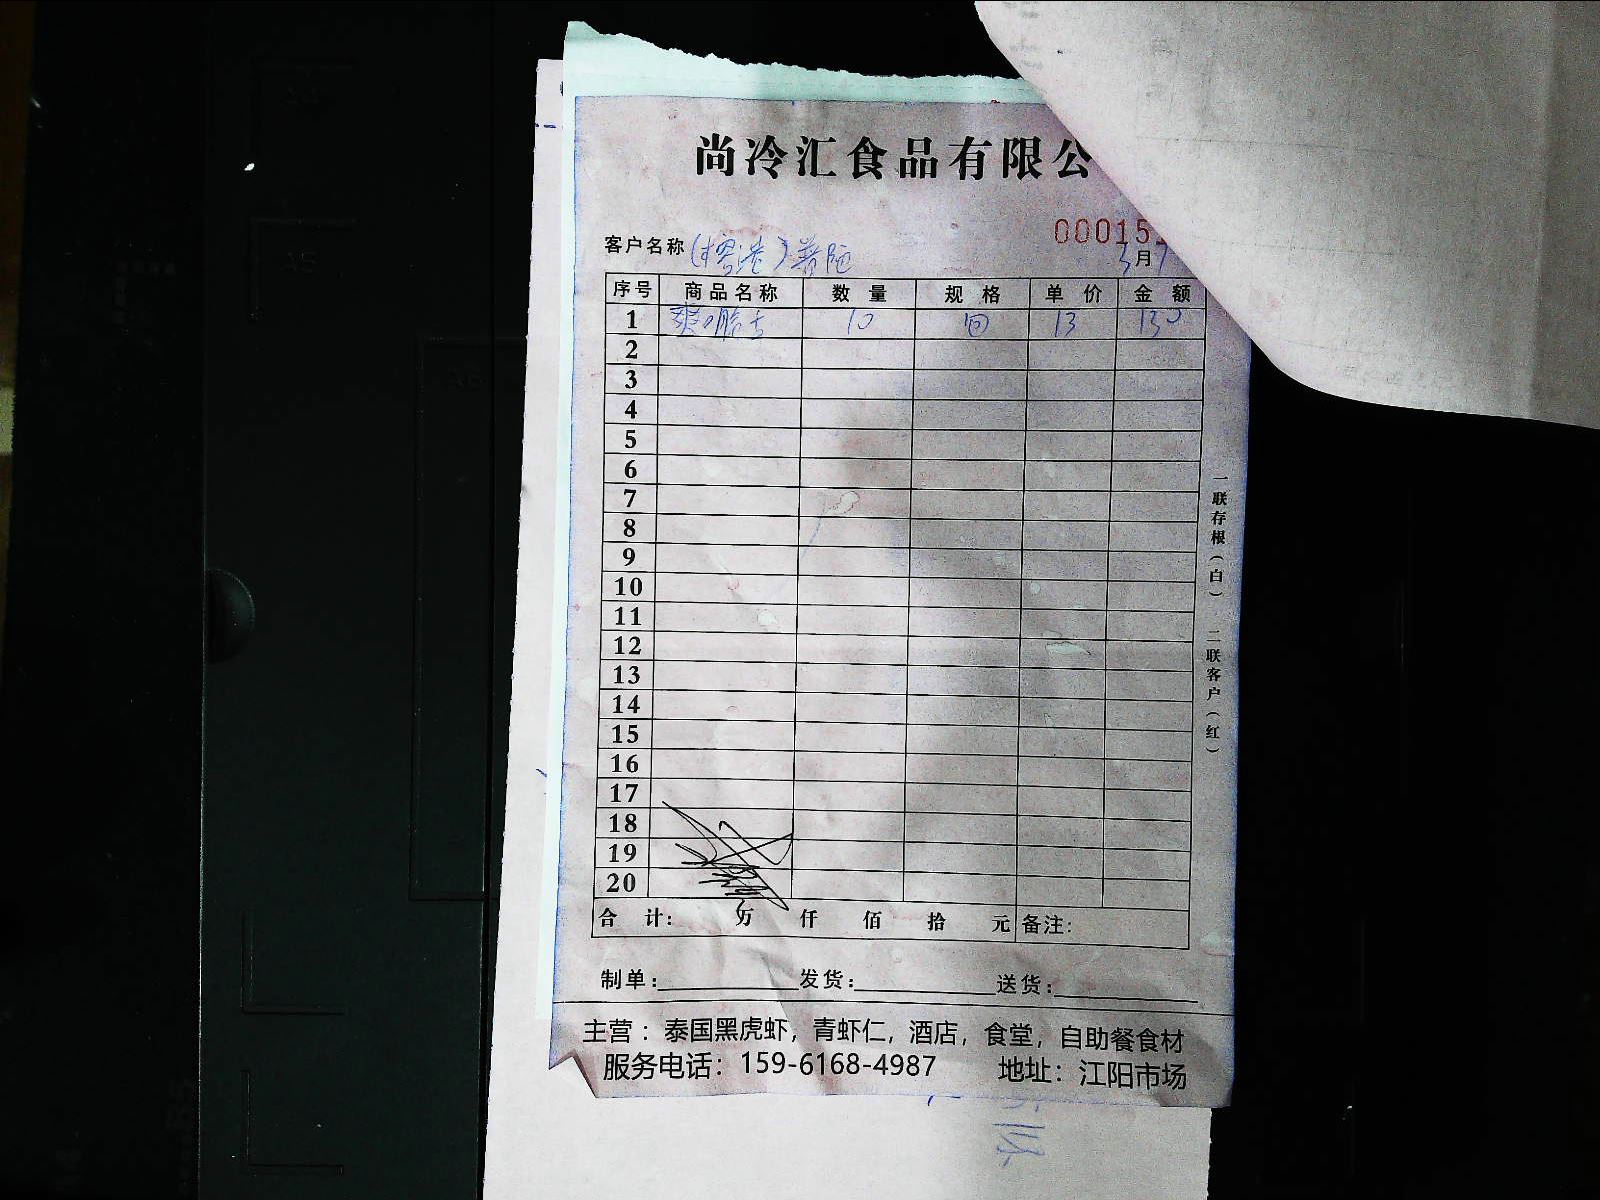 尚冷汇食品有限公
00015
客户名称 (樱港)普陀 3月7
序号 商品名称 数量 规格 单价 金额
1 爽口脆 10 包 13 130
2
3
4
5
6
7
8
9
10
11
12
13
14
15
16
17
18
19
20
合计: 万 仟 佰 拾 元 备注:
制单: 发货: 送货:
主营：泰国黑虎虾，青虾仁，酒店，食堂，自助餐食材
服务电话：159-6168-4987 地址：江阳市场
一联存根(白) 二联客户(红)